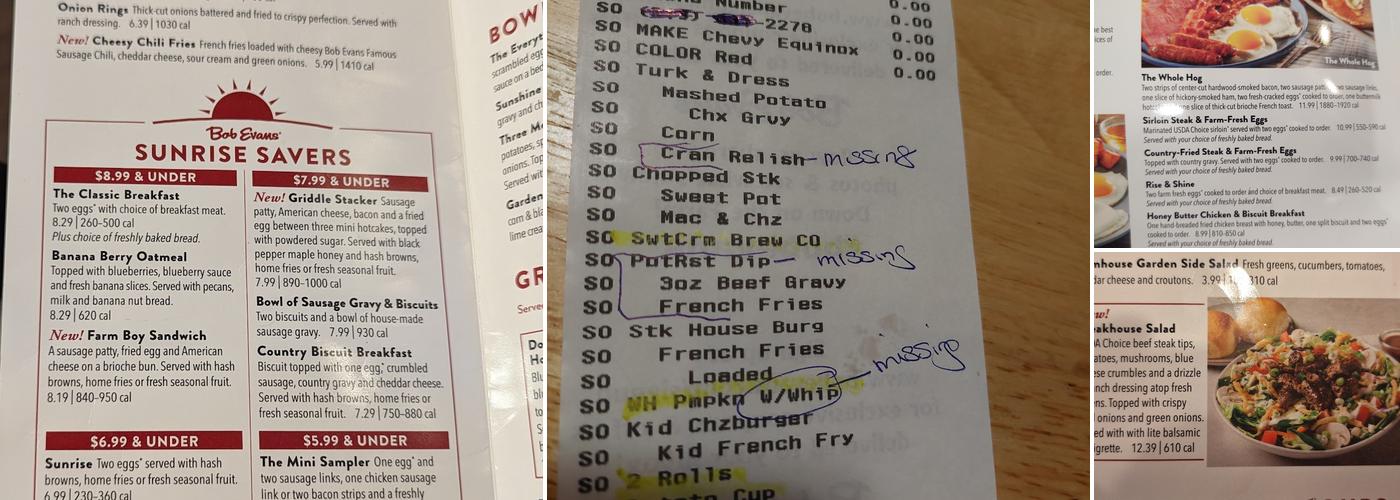 Onion Rings Thick-cut onions battered and fried to crispy perfection. Served with
ranch dressing. 6.39 | 1030 cal
New! Cheesy Chili Fries French fries loaded with cheesy Bob Evans Famous
Sausage Chili, cheddar cheese, sour cream and green onions. 5.99 | 1410 cal
Bob Evans
SUNRISE SAVERS
$8.99 & UNDER
The Classic Breakfast
Two eggs* with choice of breakfast meat.
8.29 | 260-500 cal
Plus choice of freshly baked bread.
Banana Berry Oatmeal
Topped with blueberries, blueberry sauce
and fresh banana slices. Served with pecans,
milk and banana nut bread.
8.29 | 620 cal
New! Farm Boy Sandwich
A sausage patty, fried egg and American
cheese on a brioche bun. Served with hash
browns, home fries or fresh seasonal fruit.
8.19 | 840-950 cal
$7.99 & UNDER
New! Griddle Stacker Sausage
patty, American cheese, bacon and a fried
egg between three mini hotcakes, topped
with powdered sugar. Served with black
pepper maple honey and hash browns,
home fries or fresh seasonal fruit.
7.99 | 890-1000 cal
Bowl of Sausage Gravy & Biscuits
Two biscuits and a bowl of house-made
sausage gravy. 7.99 | 930 cal
Country Biscuit Breakfast
Biscuit topped with one egg,* crumbled
sausage, country gravy and cheddar cheese.
Served with hash browns, home fries or
fresh seasonal fruit. 7.29 | 750-880 cal
$6.99 & UNDER
Sunrise Two eggs* served with hash
browns, home fries or fresh seasonal fruit.
6.99 | 230-360 cal
$5.99 & UNDER
The Mini Sampler One egg* and
two sausage links, one chicken sausage
link or two bacon strips and a freshly
BOW
The Everyt
scrambled egg
sauce on a bed
Sunshine
gravy and ch
Three Me
potatoes, s
onions. Top
Served wit
Garden
corn & bla
lime crea
GR
Serve
Number 0.00
SO -2278
SO MAKE Chevy Equinox 0.00
SO COLOR Red 0.00
SO Turk & Dress 0.00
SO Mashed Potato
SO Chx Grvy
SO Corn
SO Cran Relish missing
SO Chopped Stk
SO Sweet Pot
SO Mac & Chz
SO SwtCrm Brew CO
SO PotRst Dip missing
SO 3oz Beef Gravy
SO French Fries
SO Stk House Burg
SO French Fries
SO Loaded
SO WH Pmpkn W/Whip missing
SO Kid Chzburger
SO Kid French Fry
SO 2 Rolls
Cup
The Whole Hog
The Whole Hog
Two strips of center-cut hardwood-smoked bacon, two sausage two sausage links,
one slice of hickory-smoked ham, two fresh-cracked eggs* cooked to order, one buttermilk
one slice of thick-cut brioche French toast. 11.99 | 1880-1920 cal
Sirloin Steak & Farm-Fresh Eggs
Marinated USDA Choice sirloin* served with two eggs* cooked to order. 10.99 | 550-590 cal
Served with your choice of freshly baked bread.
Country-Fried Steak & Farm-Fresh Eggs
Topped with country gravy. Served with two eggs* cooked to order. 9.99 | 700-740 cal
Served with your choice of freshly baked bread.
Rise & Shine
Two farm fresh eggs* cooked to order and choice of breakfast meat. 8.49 | 260-520 cal
Served with your choice of freshly baked bread.
Honey Butter Chicken & Biscuit Breakfast
One hand-breaded fried chicken breast with honey butter, one split biscuit and two eggs*
cooked to order. 8.99 | 810-850 cal
Served with your choice of freshly baked bread.
mhouse Garden Side Salad Fresh greens, cucumbers, tomatoes,
dar cheese and croutons. 3.99 | 310 cal
w!
eakhouse Salad
DA Choice beef steak tips,
atoes, mushrooms, blue
ese crumbles and a drizzle
nch dressing atop fresh
ns. Topped with crispy
onions and green onions.
ed with with lite balsamic
igrette. 12.39 | 610 cal